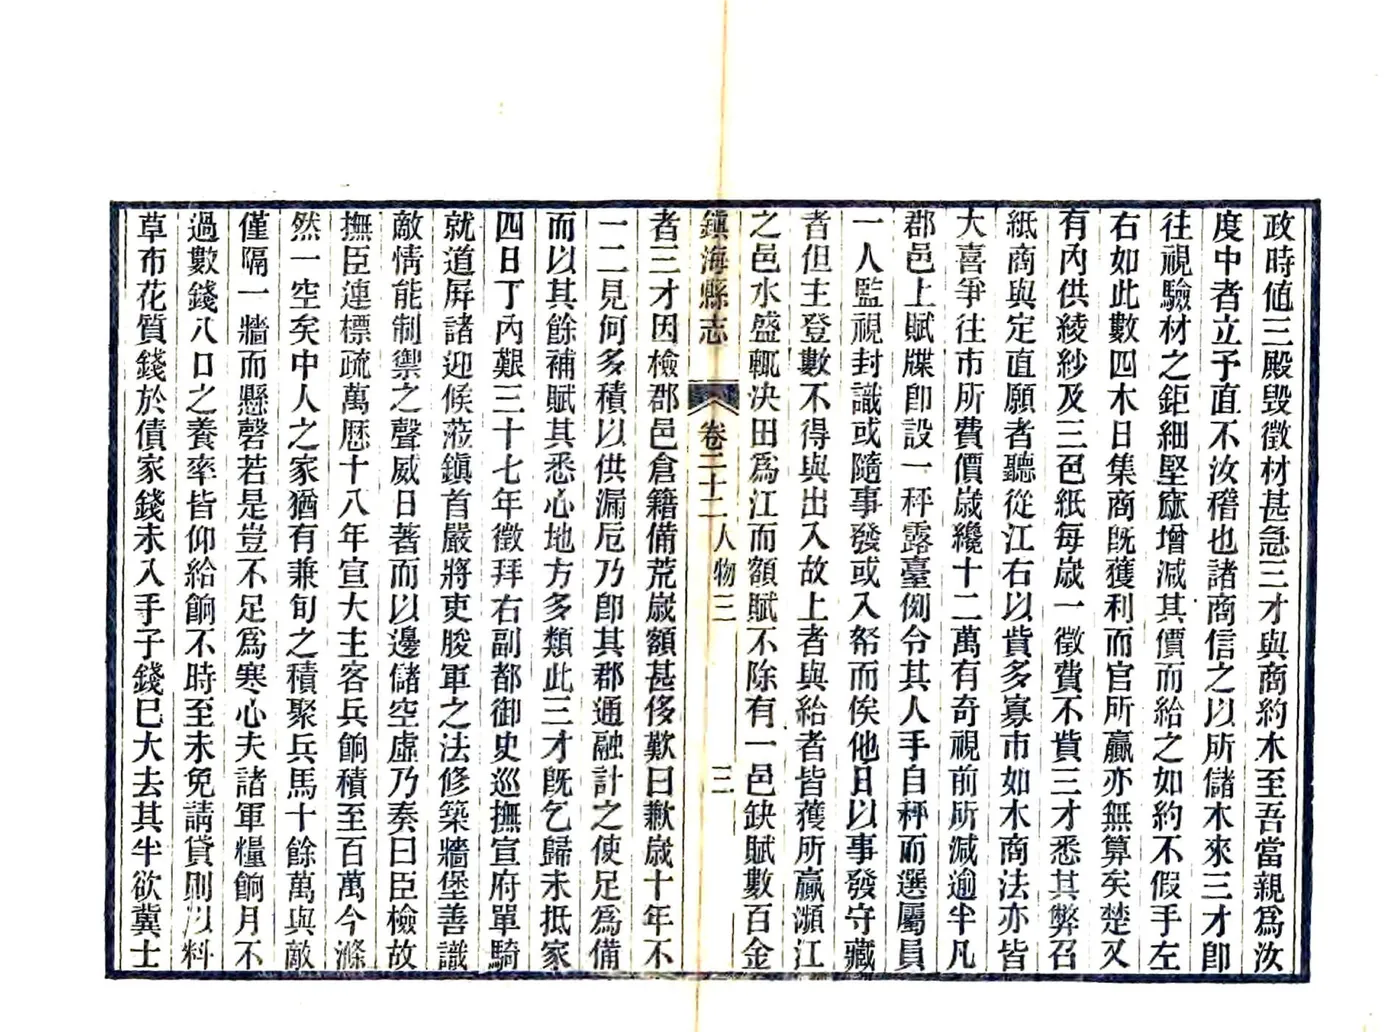 政時値三殿毀徵材甚急三才與商約木至吾當親爲汝
度中者立予直不汝稽也諸商信之以所儲木來三才卽
往視驗材之鉅細堅窳增減其價而給之如約不假手左
右如此數四木日集商既獲利而官所贏亦無算矣楚又
有內供綾紗及三色紙每歲一徵費不貲三才悉其弊召
紙商與定直願者聽從江右以貲多寡市如木商法亦皆
大喜爭往市所費價歲纔十二萬有奇視前所減逾半凡
郡邑上賦牒卽設一秤露臺俾令其人手自秤而選屬員
一人監視封識或隨事發或入帑而俟他日以事發守藏
者但主登數不得與出入故上者與給者皆獲所贏瀕江
之邑水盛輒決田爲江而額賦不除有一邑缺賦數百金
鎭海縣志
卷二十二人物三
三
者三才因檢郡邑倉籍備荒歲額甚侈歎曰歉歲十年不
一二見何多積以供漏卮乃卽其郡通融計之使足爲備
而以其餘補賦其悉心地方多類此三才既乞歸未抵家
四日丁內艱三十七年徵拜右副都御史巡撫宣府單騎
就道屛諸迎候蒞鎭首嚴將吏朘軍之法修築牆堡善識
敵情能制禦之聲威日著而以邊儲空虛乃奏曰臣檢故
撫臣連標疏萬厯十八年宣大主客兵餉積至百萬今滌
然一空矣中人之家猶有兼旬之積聚兵馬十餘萬與敵
僅隔一牆而懸磬若是豈不足爲寒心夫諸軍糧餉月不
過數錢八口之養率皆仰給餉不時至未免請貸則以料
草布花質錢於債家錢未入手子錢已大去其半欲冀士